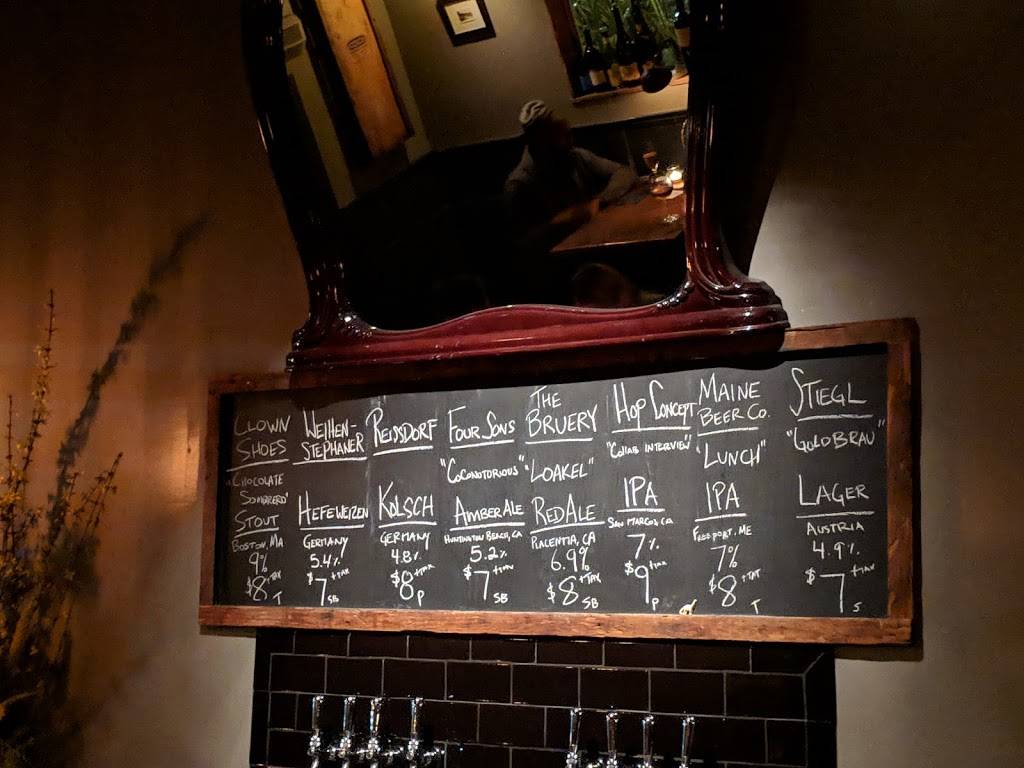 CLOWN
SHOES
"CHOCOLATE
SOMBRERO"
STOUT
BOSTON, MA
9%
$8 +TAX
T
WEIHEN-
STEPHANER
HEFEWEIZEN
GERMANY
5.4%
$7 +TAX
SB
REISSDORF
KOLSCH
GERMANY
4.8%
$8 +TAX
P
FOUR SONS
"COCONOTORIOUS"
AMBER ALE
HUNTINGTON BEACH, CA
5.2%
$7 +TAX
SB
THE
BRUERY
"LOAKEL"
RED ALE
PLACENTIA, CA
6.9%
$8 +TAX
SB
HOP CONCEPT
"COLLAB INTERVIEW"
IPA
SAN MARCOS CA
7%
$9 +TAX
P
MAINE
BEER CO.
"LUNCH"
IPA
FREEPORT, ME
7%
$8 +TAX
T
STIEGL
"GOLDBRAU"
LAGER
AUSTRIA
4.9%
$7 +TAX
S